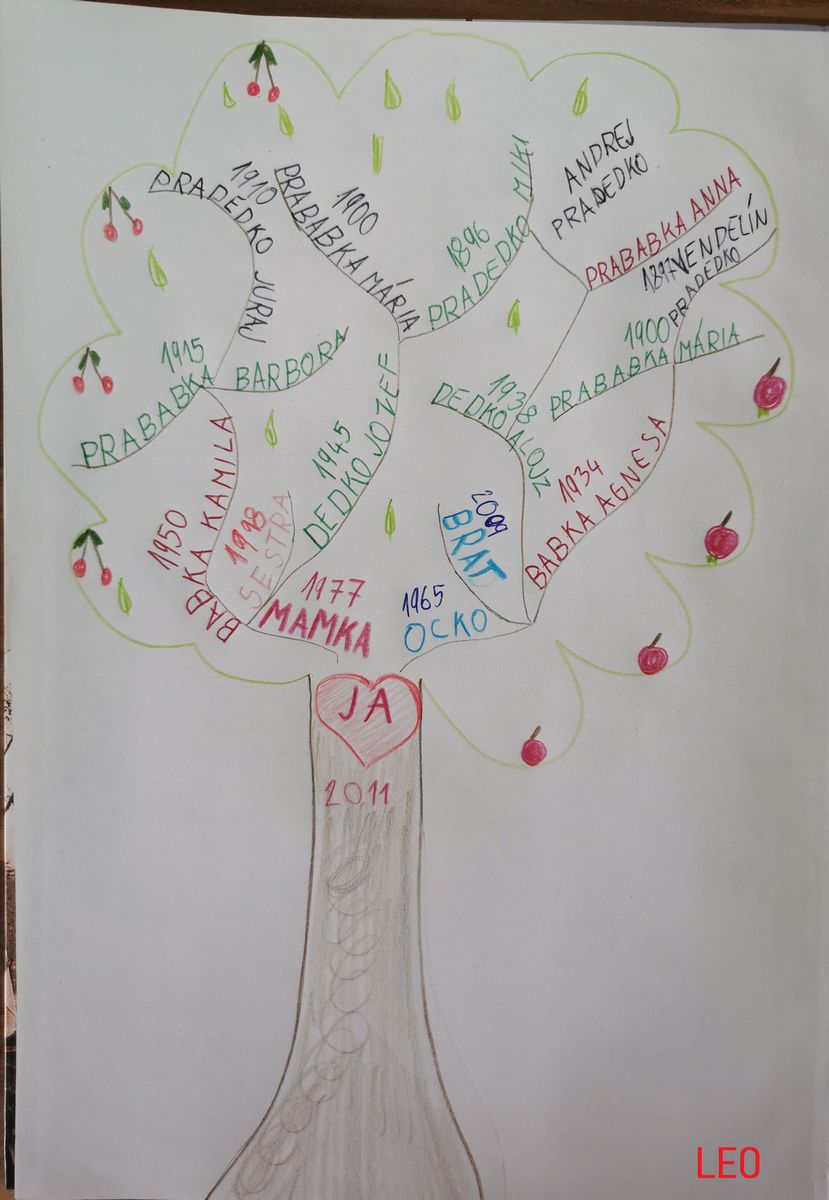 1910
PRADEDKO JURAJ
1900
PRABABKA MÁRIA
1896
PRADEDKO MIKI
ANDREJ
PRADEDKO
PRABABKA ANNA
1897 VENDELÍN
PRADEDKO
1915
PRABABKA BARBORA
1900
PRABABKA MÁRIA
1938
DEDKO ALOJZ
1945
DEDKO JOZEF
1934
BABKA AGNESA
1950
BABKA KAMILA
1998
SESTRA
BRAT
1977
MAMKA
1965
OCKO
JA
2011
LEO